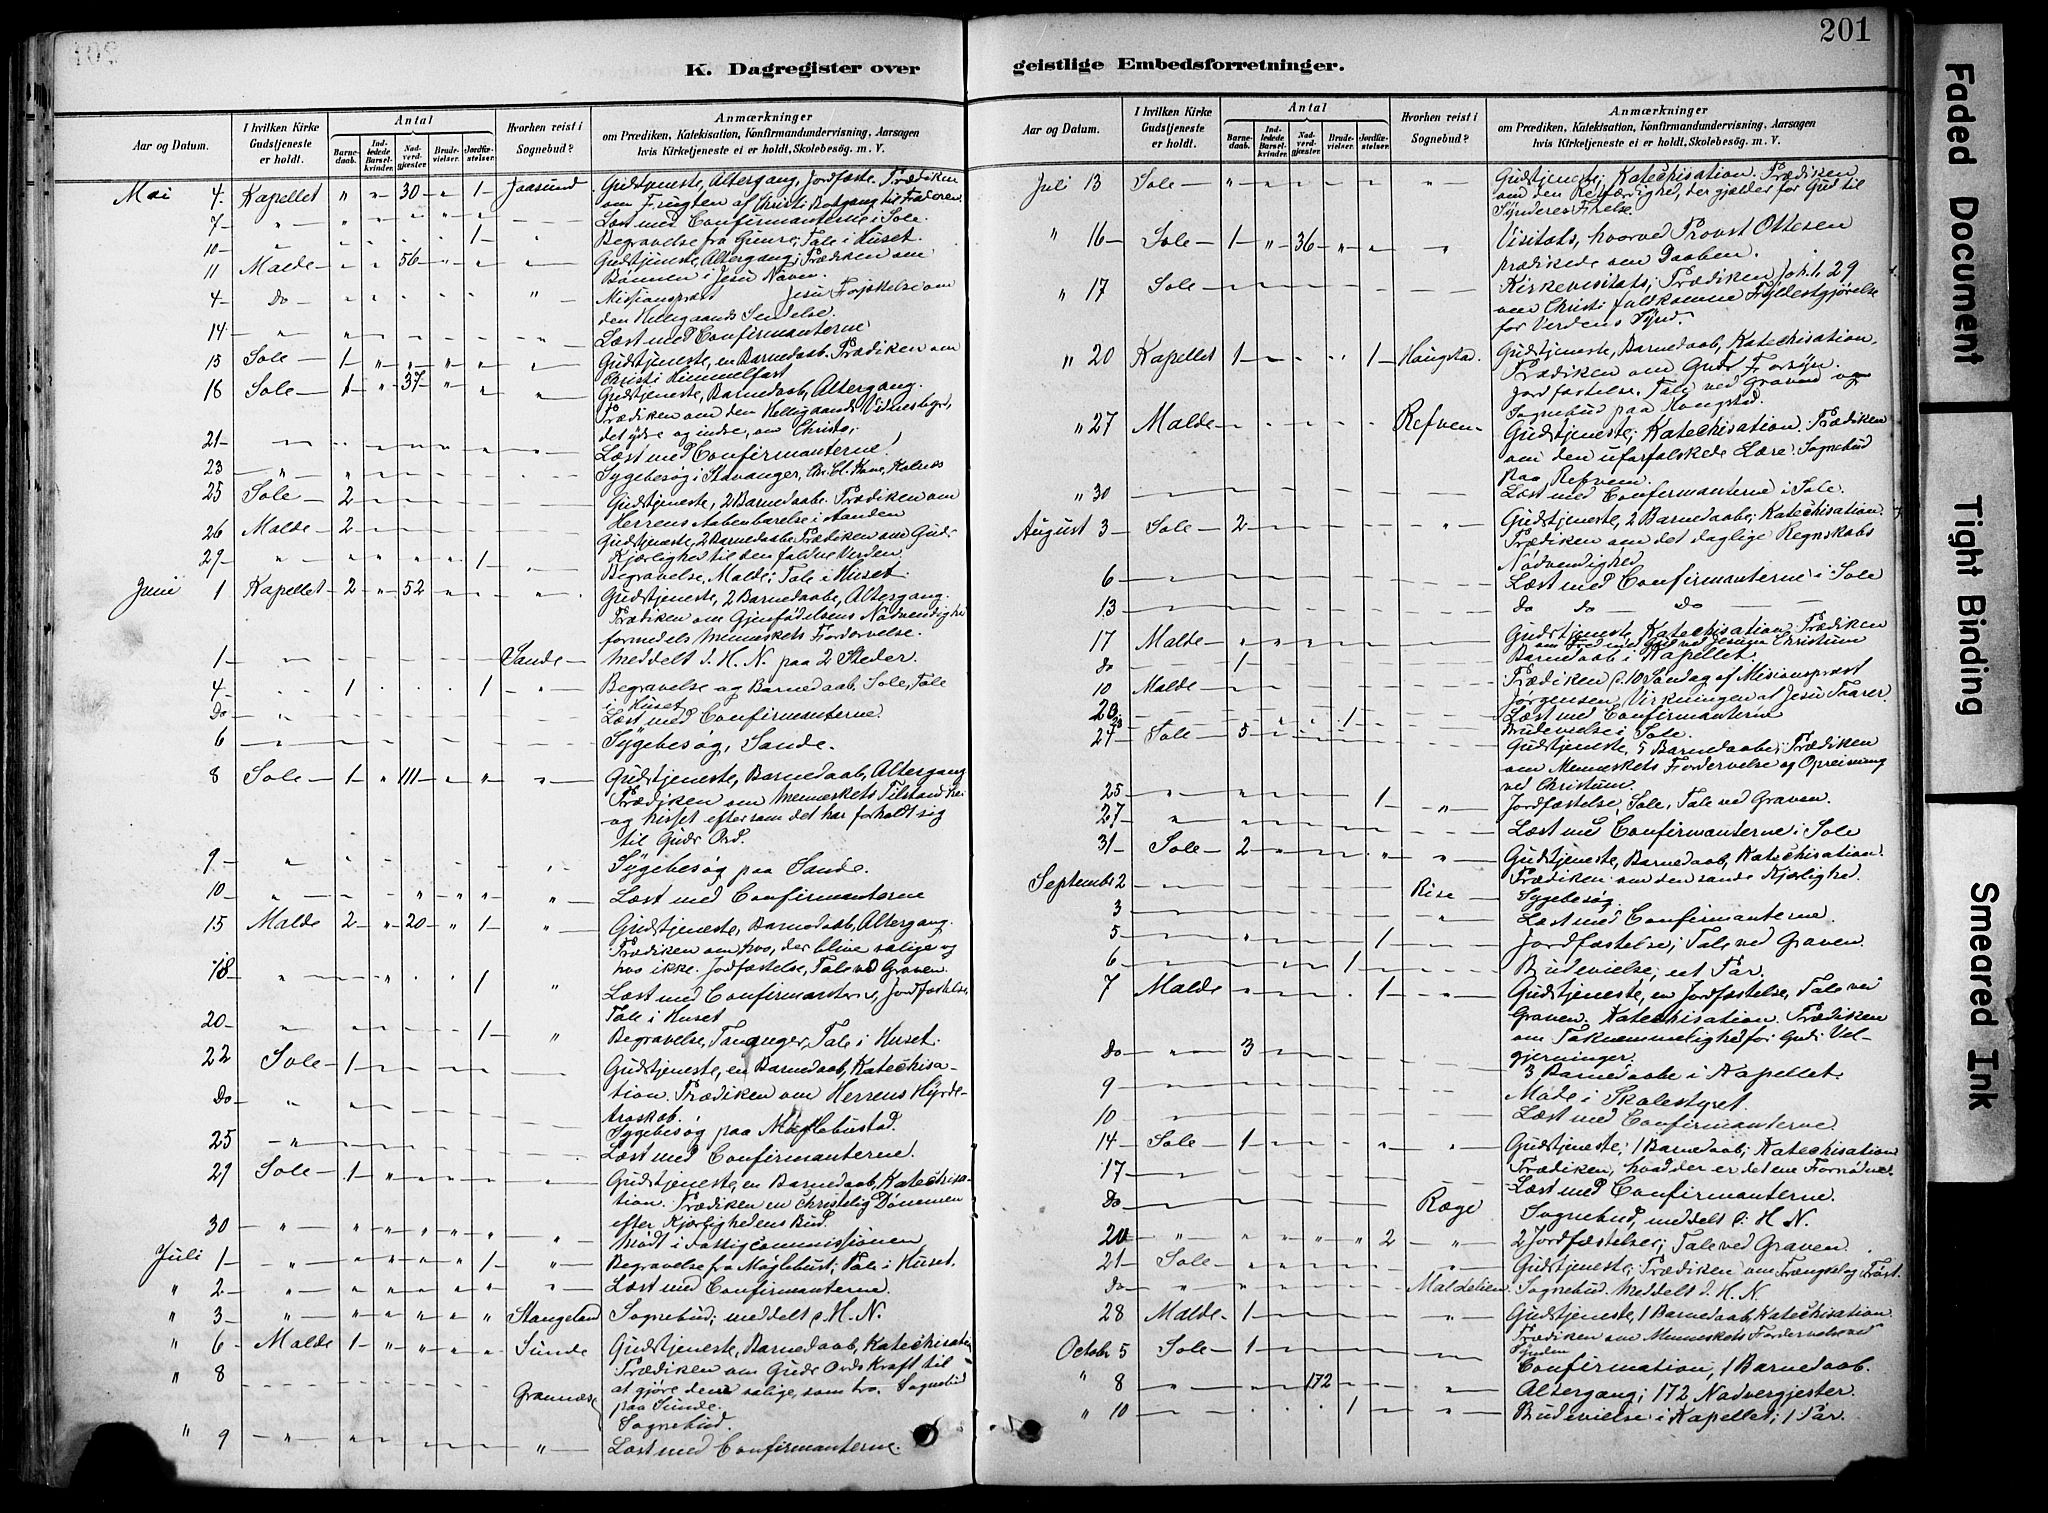 201
K. Dagregister over geistlige Embedsforretninger.
Aar og Datum. | I hvilken Kirke Gudstjeneste er holdt. | Antal | Barnedaab. | Indledede Barselkvinder. | Nadverdgjæster | Brudevielser. | Jordfæstelser. | Hvorhen reist i Sognebud? | Anmærkninger om Prædiken, Katekisation, Konfirmandundervisning, Aarsagen hvis Kirketjeneste ei er holdt, Skolebesøg. m. V.
Mai 4. Kapellet " " 30 " 1 Jaasund. Gudstjeneste, Altergang, Jordfæste. Prædiken
om Frugten af Christi Bortgang til Faderen.
7 Læst med Confirmanterne i Sole.
10 1 Begravelse fra; Tale i Huset.
11 Malde 56 Gudstjeneste, Altergang; Prædiken om
Bønnen i Jesu Navn.
4 Do Missionspræst Jesu Forjættelse om
den Helligaands Sendelse.
14 Læst med Confirmanterne
15 Sole 1 Gudstjeneste, en Barnedaab. Prædiken om
Christi Himmelfart
18 Sole 1 37 Gudstjeneste, Barnedaab, Altergang.
Prædiken om den Helligaands Vidnesbyrd,
det ydre og indre, om Christo.
21 Læst med Confirmanterne!
23 Sygebesøg i Stavanger,
25 Sole 2 Gudstjeneste, 2 Barnedaabe. Prædiken om
Herrens Aabenbarelse i Aanden
26 Malde 2 Gudstjeneste, 2 Barnedaabe. Prædiken om Guds
Kjærlighed til den faldne Verden.
29 1 Begravelse, Malde; Tale i Huset.
Juni 1 Kapellet 2 52 Gudstjeneste, 2 Barnedaabe, Altergang.
Prædiken om Gjenfødelsens Nødvendighed
formedels Menneskets Fordærvelse.
1 Sande Meddelt d. H. N. paa 2 Steder.
4 1 1 Begravelse og Barnedaab, Sole, Tale
i Huset
Do Læst med Confirmanterne.
6 Sygebesøg, Sande.
8 Sole 1 111 Gudstjeneste, Barnedaab, Altergang
Prædiken om Menneskets Tilstand her
og hisset eftersom det har forholdt sig
til Guds Ord.
9 Sygebesøg paa Sande.
10 Læst med Confirmanterne
15 Malde 2 20 1 Gudstjeneste, Barnedaab, Altergang.
Prædiken om hvo, der blive salige og
hvo ikke. Jordfæstelse, Tale ved Graven.
18 1 Læst med Confirmanterne, Jordfæstelse,
Tale i Huset
20 1 Begravelse, Tananger, Tale i Huset.
22 Sole 1 Gudstjeneste, en Barnedaab, Katechisa-
tion. Prædiken om Herrens Hyrde-
troskab.
Do Sygebesøg paa
25 Læst med Confirmanterne!
29 Sole 1 Gudstjeneste, en Barnedaab, Katechisa-
tion. Prædiken en christelig Dømmen
efter Kjærlighedens Bud.
30 Mødt i Fattigcommissionen
Juli 1 1 Begravelse fra Møglebust; Tale i Huset.
" 2 Læst med Confirmanterne.
" 3 Stangeland Sognebud; meddelt d. H. N.
" 6 Malde 1 Sunde Gudstjeneste, Barnedaab, Katechisation
Prædiken om Guds Ords Kraft til
at gjøre dem salige, som tro. Sognebud
paa Sunde.
" 8 Grannæs Sognebud.
" 9 Læst med Confirmanterne.
Aar og Datum. | I hvilken Kirke Gudstjeneste er holdt. | Antal | Barnedaab. | Indledede Barselkvinder. | Nadverdgjæster | Brudevielser. | Jordfæstelser. | Hvorhen reist i Sognebud? | Anmærkninger om Prædiken, Katekisation, Konfirmandundervisning, Aarsagen hvis Kirketjeneste ei er holdt, Skolebesøg. m. V.
Juli 13 Sole Gudstjeneste; Katechisation. Prædiken
om den Retfærdighed, der gjælder for Gud til
Synderes Frelse.
" 16 Sole 1 36 Visitats, hvorved Provst Ottesen
prædikede om Daaben.
" 17 Sole Kirkevisitats; Prædiken Joh. 1. 29
om Christi fuldkomne Fyldestgjørelse
for Verdens Synd.
" 20 Kapellet 1 1 Haugstad Gudstjeneste, Barnedaab, Katechisation.
Prædiken om Guds Forsyn.
Jordfæstelse. Tale ved Graven og
Sognebud paa Hougstad.
" 27 Malde Refvem Gudstjeneste; Katechisation. Prædiken
om den uforfalskede Lære. Sognebud
Paa Refvem.
" 30 Læst med Confirmanterne i Sole.
August 3 Sole 2 Gudstjeneste, 2 Barnedaabe; Katechisation.
Prædiken om det daglige Regnskabs
Nødvendighed
6 Læst med Confirmanterne i Sole
13 Do Do Do
17 Malde Gudstjeneste, Katechisation. Prædiken
om Fred med Gud ved Jesum Christum
Do 1 Barnedaab i Kapellet.
10 Malde Prædiken p. 10 Søndag af Misionspræst
Jørgensen, Virkningen af Jesu Taarer.
20 Læst med Confirmanterne
23 1 Brudevielse i Sole.
24 Sole 5 Gudstjeneste, 5 Barnedaabe; Prædiken
om Menneskets Fordervelse og Opreisning
ved Christum.
25 1 Jordfæstelse, Sole, Tale ved Graven.
27 Læst med Confirmanterne i Sole
31 Sole 2 Gudstjeneste, Barnedaab, Katechisation.
Prædiken om den sande Kjærlighed.
Septembr 2 Rise Sygebesøg.
3 Læst med Confirmanterne.
5 1 Jordfæstelse; Tale ved Graven.
6 1 Brudevielse; eet Par.
7 Malde 1 Gudstjeneste, en Jordfæstelse, Tale ved
Graven. Katechisation. Prædiken
om Taknemmelighed for Guds Vel-
gjerninger.
Do 3 3 Barnedaabe i Kapellet.
9 Møde i Skolestyret.
10 Læst med Confirmanterne
14 Sole 1 Gudstjeneste; 1 Barnedaab; Katechisation
Prædiken, hvad der er det ene Fornødne.
17 Læst med Confirmanterne.
Do Ræge Sognebud, meddelt d. H. N.
20 2 2 Jordfæstelser; Tale ved Graven.
21 Sole Gudstjeneste; Prædiken om Trængsel og Trøst.
Do Maldelien Sognebud. Meddelt d. H. N.
28 Malde 1 Gudstjeneste, 1 Barnedaab, Katechisation
Prædiken om Menneskets Fordervelse ved
Synden
Octobr 5 Sole 1 Confirmation, 1 Barnedaab.
" 8 172 Altergang; 172 Nadvergjester
" 10 1 Brudevielse i Kapellet; 1 Par.
Faded Document
Tight Binding
Smeared Ink